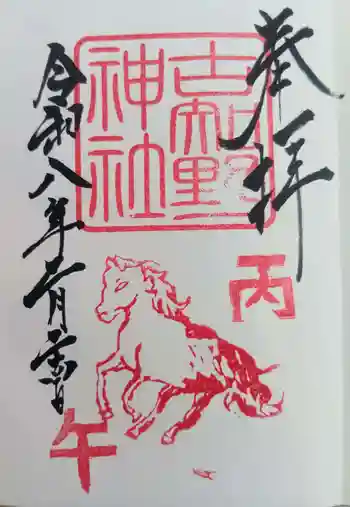 奉拝
古知野
神社
丙
令和八年 月 日
午